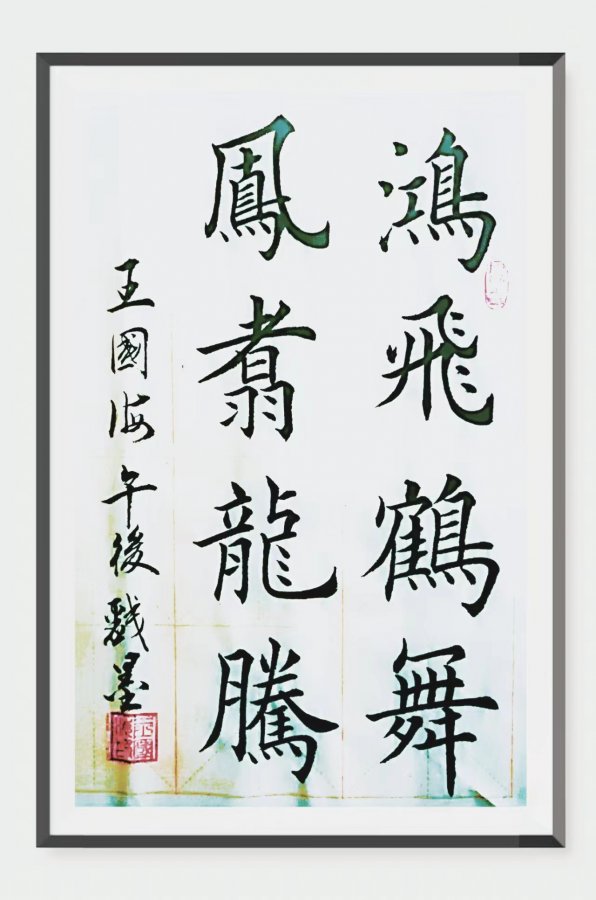 鴻飛鶴舞
鳳翥龍騰
王國海午後戲墨